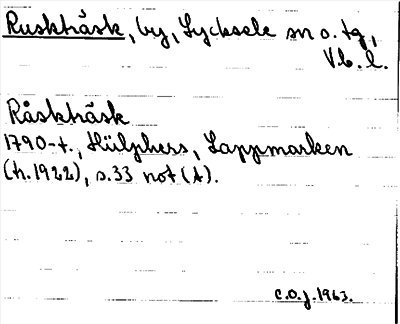 Ruskträsk, by, Lycksele sn o. tg,
Vb. l.
Råskträsk
1790-t., Hülphers, Lappmarken
(tr. 1922), s. 33 not (A).
C.O.J. 1963.